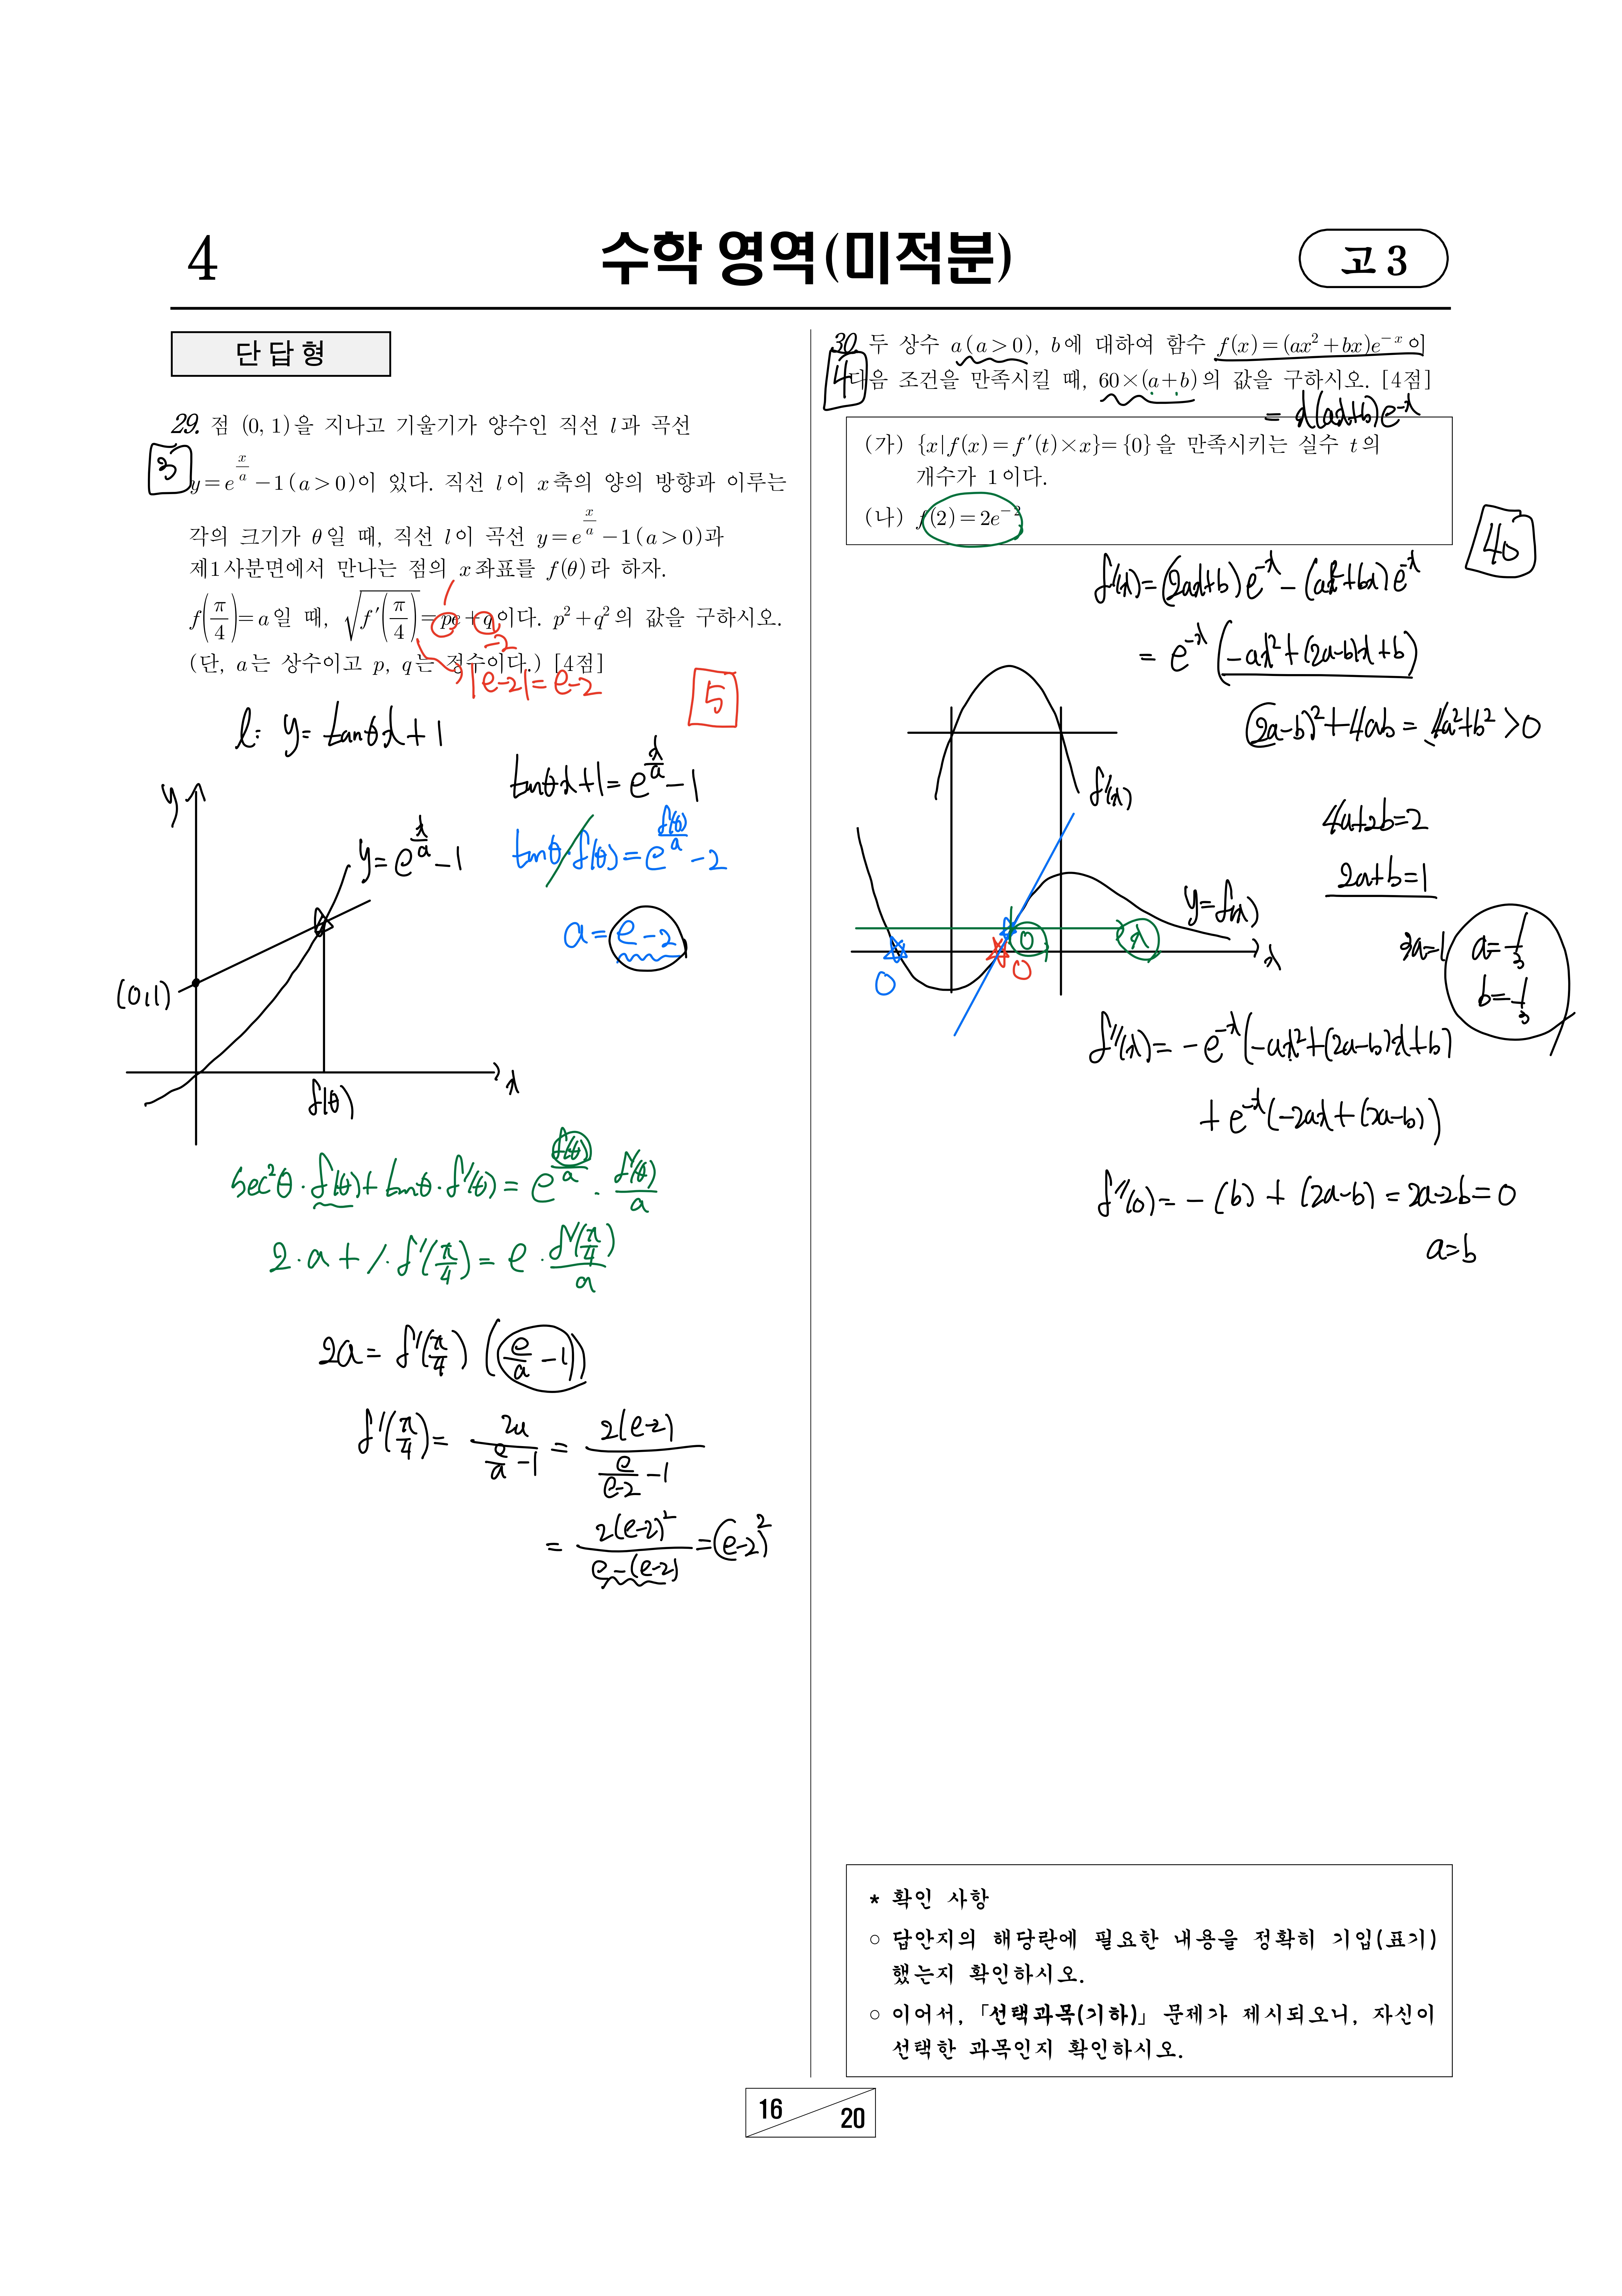 4
수학 영역(미적분)
고 3
단 답 형
29. 점 (0, 1)을 지나고 기울기가 양수인 직선 l과 곡선
3
y=e^{x/a}-1(a>0)이 있다. 직선 l이 x축의 양의 방향과 이루는
각의 크기가 θ일 때, 직선 l이 곡선 y=e^{x/a}-1(a>0)과
제1사분면에서 만나는 점의 x좌표를 f(θ)라 하자.
f(π/4)=a일 때, √f′(π/4)=pe+q이다. p²+q²의 값을 구하시오.
1
-2
(단, a는 상수이고 p, q는 정수이다.) [4점]
|e-2|=e-2
5
l: y=tanθx+1
tanθx+1=e^{x/a}-1
tanθ·f(θ)=e^{f(θ)/a}-2
a=e-2
y
y=e^{x/a}-1
(0,1)
f(θ)
x
sec²θ·f(θ)+tanθ·f'(θ)=e^{f(θ)/a}·f'(θ)/a
2·a+1·f'(π/4)=e·f'(π/4)/a
2a=f'(π/4)(e/a-1)
f'(π/4)=2a/(e/a-1)=2(e-2)/(e/(e-2)-1)
=2(e-2)²/(e-(e-2))=(e-2)²
30. 두 상수 a(a>0), b에 대하여 함수 f(x)=(ax²+bx)e^{-x}이
4
다음 조건을 만족시킬 때, 60×(a+b)의 값을 구하시오. [4점]
=x(ax+b)e^{-x}
(가) {x|f(x)=f′(t)×x}={0}을 만족시키는 실수 t의
개수가 1이다.
(나) f(2)=2e^{-2}
40
f'(x)=(2ax+b)e^{-x}-(ax²+bx)e^{-x}
=e^{-x}(-ax²+(2a-b)x+b)
(2a-b)²+4ab=4a²+b²>0
f'(x)
4a+2b=2
2a+b=1
y=f(x)
0
x
0
0
x
3a=1
a=1/3
b=1/3
f''(x)=-e^{-x}(-ax²+(2a-b)x+b)
+e^{-x}(-2ax+(2a-b))
f''(0)=-(b)+(2a-b)=2a-2b=0
a=b
* 확인 사항
○ 답안지의 해당란에 필요한 내용을 정확히 기입(표기)
했는지 확인하시오.
○ 이어서, 「선택과목(기하)」 문제가 제시되오니, 자신이
선택한 과목인지 확인하시오.
16
20